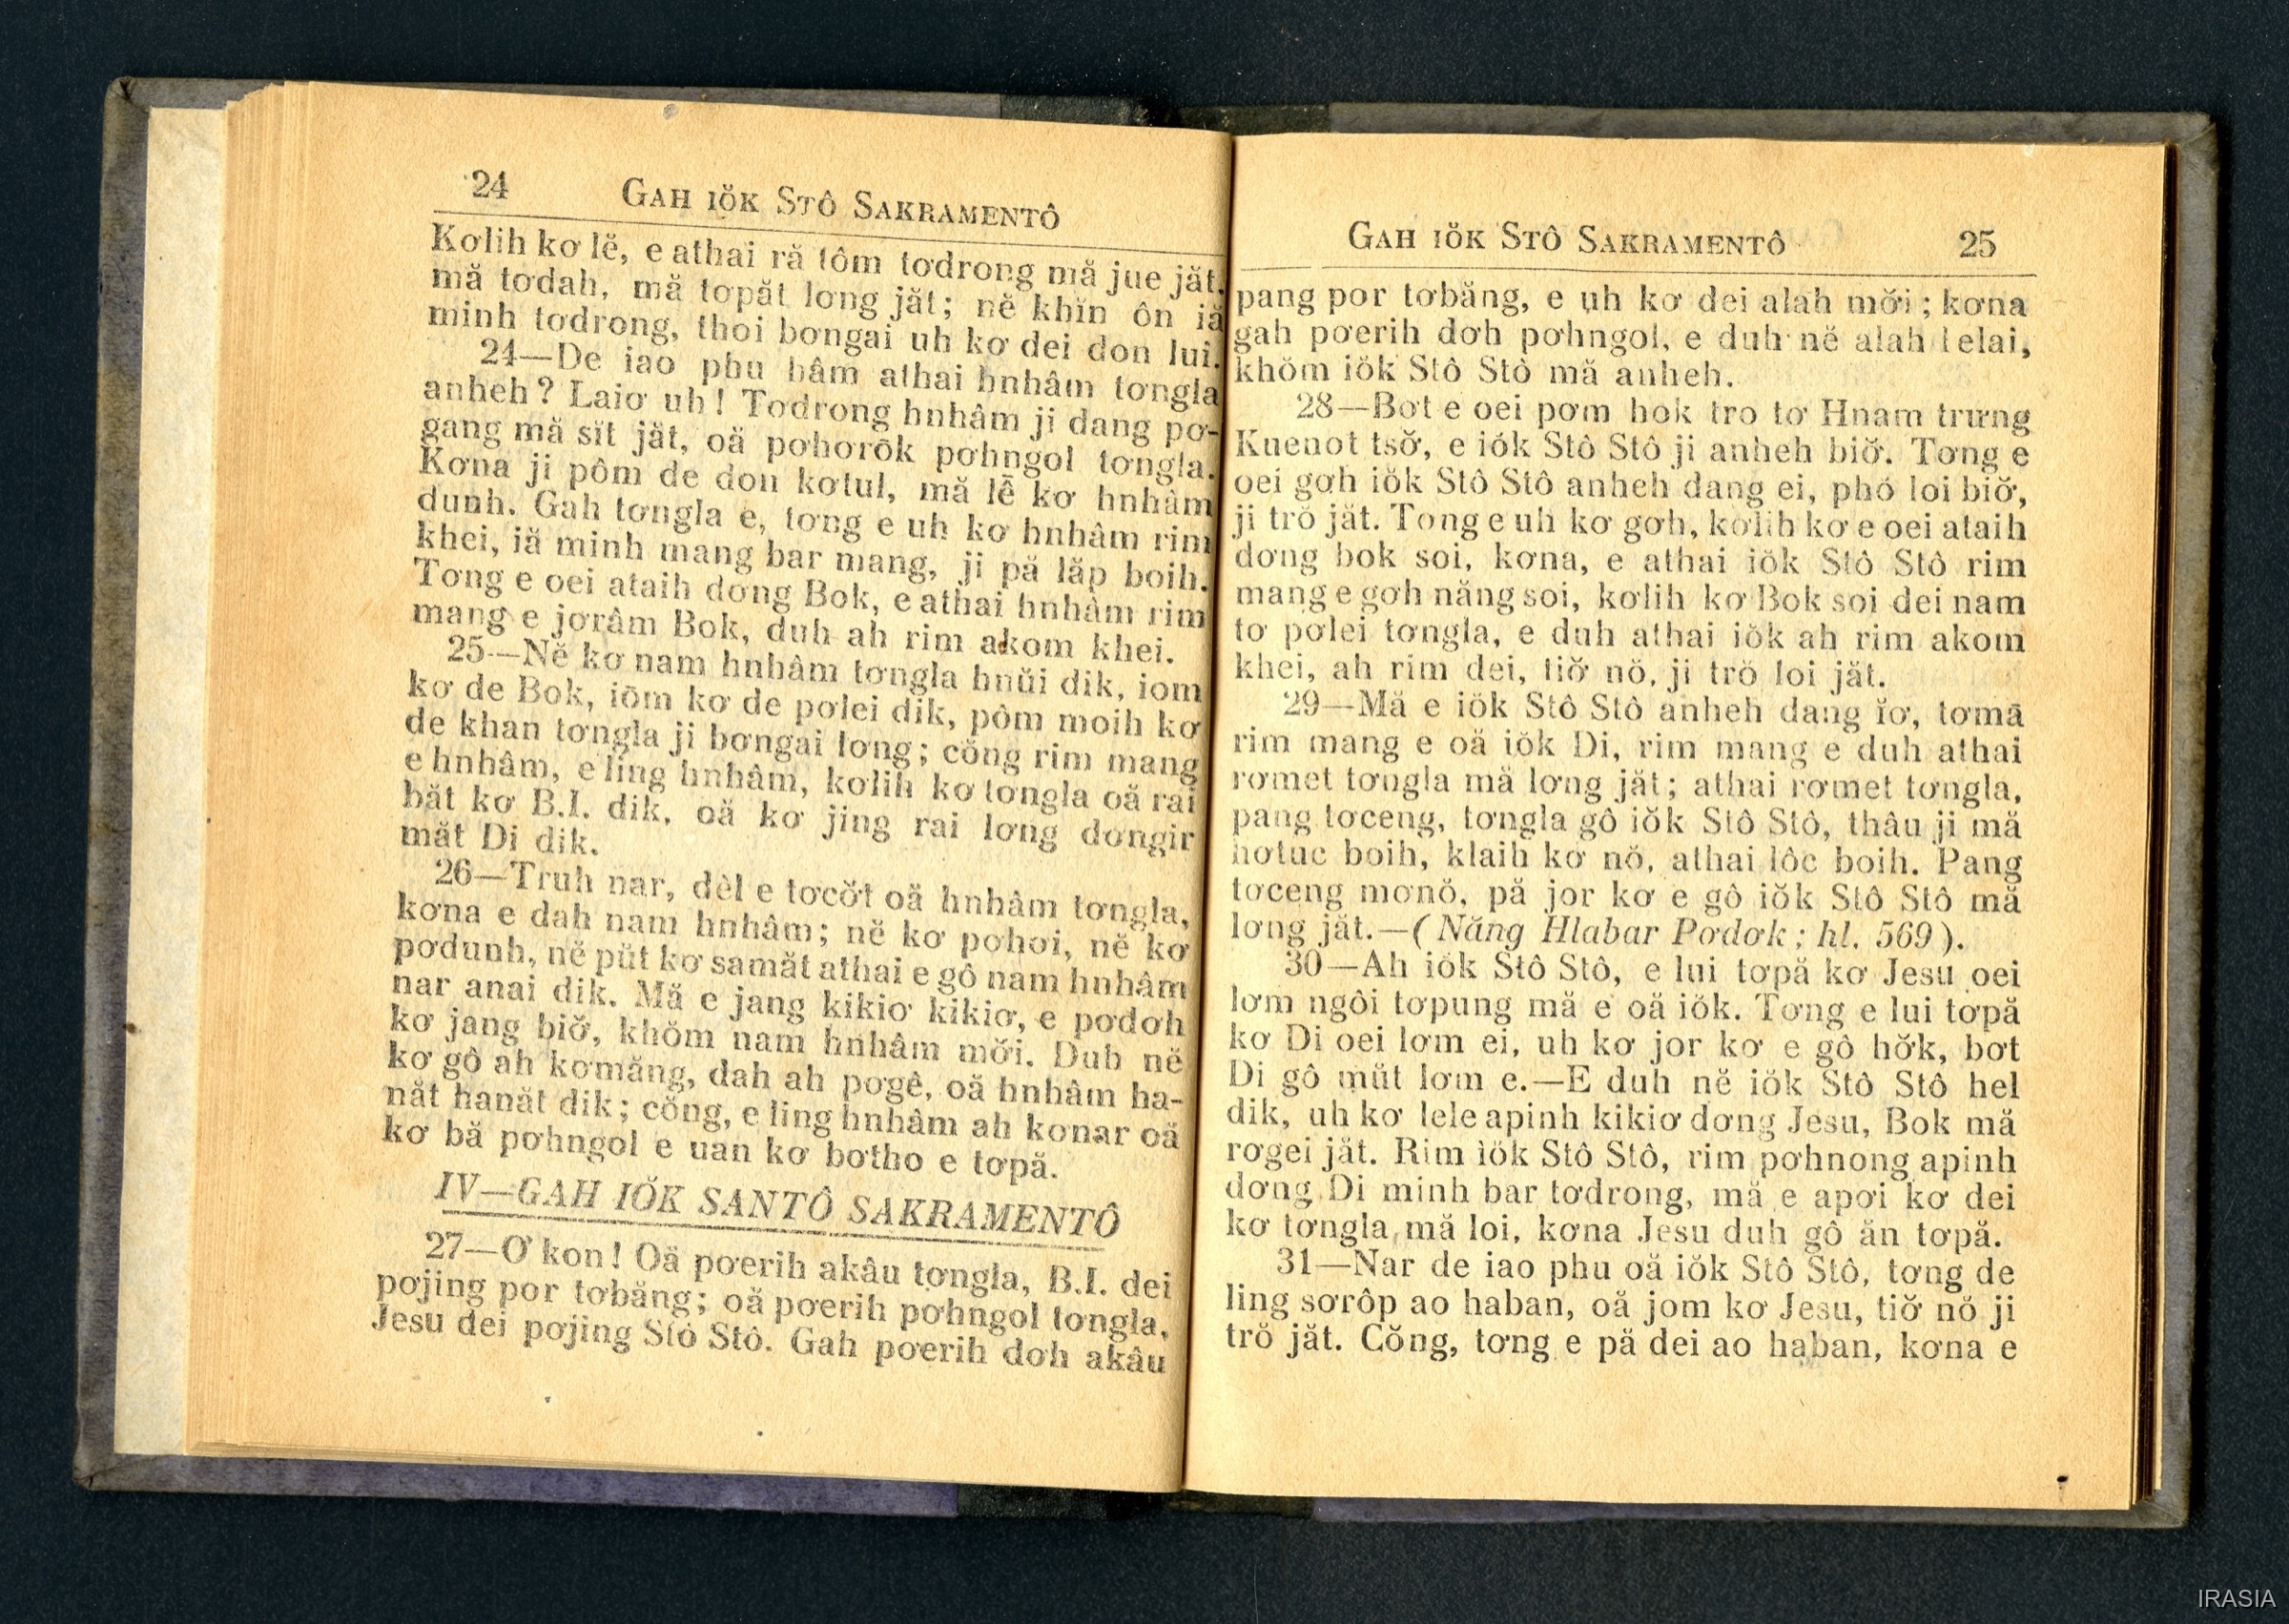 24 GAH IŎK STÔ SAKRAMENTÔ
Kơlih kơ lĕ, e athai ră tôm tơdrong mă jue jăt,
mă tơdah, mă tơpăt lơng jăt; nĕ khĭn ôn iă
minh tơdrong, thoi bơngai uh kơ dei don lui.
24—De iao phu hâm athai hnhâm tơngla
anheh? Laiơ uh! Tơdrong hnhâm ji dang pơ-
gang mă sĭt jăt, oă pơhơrŏk pơhngol tơngla.
Kơna ji pôm de don kơtul, mă lĕ kơ hnhâm
dunh. Gah tơngla e, tơng e uh kơ hnhâm rim
khei, iă minh mang bar mang, ji pă lăp boih.
Tơng e oei ataih dơng Bok, e athai hnhâm rim
mang e jơrâm Bok, duh ah rim akom khei.
25—Nĕ kơ nam hnhâm tơngla hnŭi dik, iom
kơ de Bok, iŏm kơ de pơlei dik, pôm moih kơ
de khan tơngla ji bơngai lơng; cŏng rim mang
e hnhâm, e ling hnhâm, kơlih kơ tơngla oă rai
băt kơ B.I. dik, oă kơ jing rai lơng dơngir
măt Di dik.
26—Truh nar, dêl e tơcơ̆t oă hnhâm tơngla,
kơna e dah nam hnhâm; nĕ kơ pơhơi, nĕ kơ
pơdunh, nĕ pŭt kơ samăt athai e gô nam hnhâm
nar anai dik. Mă e jang kikiơ kikiơ, e pơdơh
kơ jang biơ̆, khŏm nam hnhâm mơ̆i. Duh nĕ
kơ gô ah kơmăng, dah ah pơgê, oă hnhâm ha-
năt hanăt dik; cŏng, e ling hnhâm ah kơnar oă
kơ bă pơhngol e uan kơ bơtho e tơpă.
IV—GAH IŎK SANTÔ SAKRAMENTÔ
27—Ơ kon! Oă pơerih akâu tơngla, B.I. dei
pơjing por tơbăng; oă pơerih pơhngol tơngla,
Jesu dei pơjing Stô Stô. Gah pơerih dơh akâu
GAH IŎK STÔ SAKRAMENTÔ 25
pang por tơbăng, e uh kơ dei alah mơ̆i; kơna
gah pơerih dơh pơhngol, e duh nĕ alah lelai,
khŏm iŏk Stô Stô mă anheh.
28—Bơt e oei pơm hok tro tơ Hnam trưng
Kuenot tsơ̆, e iŏk Stô Stô ji anheh biơ̆. Tơng e
oei gơh iŏk Stô Stô anheh dang ei, phŏ loi biơ̆,
ji trŏ jăt. Tong e uh kơ gơh, kơlih kơ e oei ataih
dơng bok soi, kơna, e athai iŏk Stô Stô rim
mang e gơh năng soi, kơlih kơ Bok soi dei nam
tơ pơlei tơngla, e duh athai iŏk ah rim akom
khei, ah rim dei, tiơ̆ nŏ, ji trŏ loi jăt.
29—Mă e iŏk Stô Stô anheh dang ĭơ, tơmă
rim mang e oă iŏk Di, rim mang e duh athai
rơmet tơngla mă lơng jăt; athai rơmet tơngla,
pang tơceng, tơngla gô iŏk Stô Stô, thâu ji mă
hơtuc boih, klaih kơ nŏ, athai lôc boih. Pang
tơceng mơnŏ, pă jor kơ e gô iŏk Stô Stô mă
lơng jăt.—(Năng Hlabar Pơdơk; hl. 569).
30—Ah iŏk Stô Stô, e lui tơpă kơ Jesu oei
lơm ngôi tơpung mă e oă iŏk. Tơng e lui tơpă
kơ Di oei lơm ei, uh kơ jor kơ e gô hơ̆k, bơt
Di gô mŭt lơm e.—E duh nĕ iŏk Stô Stô hel
dik, uh kơ lele apinh kikiơ dơng Jesu, Bok mă
rơgei jăt. Rim iŏk Stô Stô, rim pơhnong apinh
dơng Di minh bar tơdrong, mă e apơi kơ dei
kơ tơngla mă loi, kơna Jesu duh gô ăn tơpă.
31—Nar de iao phu oă iŏk Stô Stô, tơng de
ling sơrôp ao haban, oă jom kơ Jesu, tiơ̆ nŏ ji
trŏ jăt. Cŏng, tơng e pă dei ao haban, kơna e
IRASIA